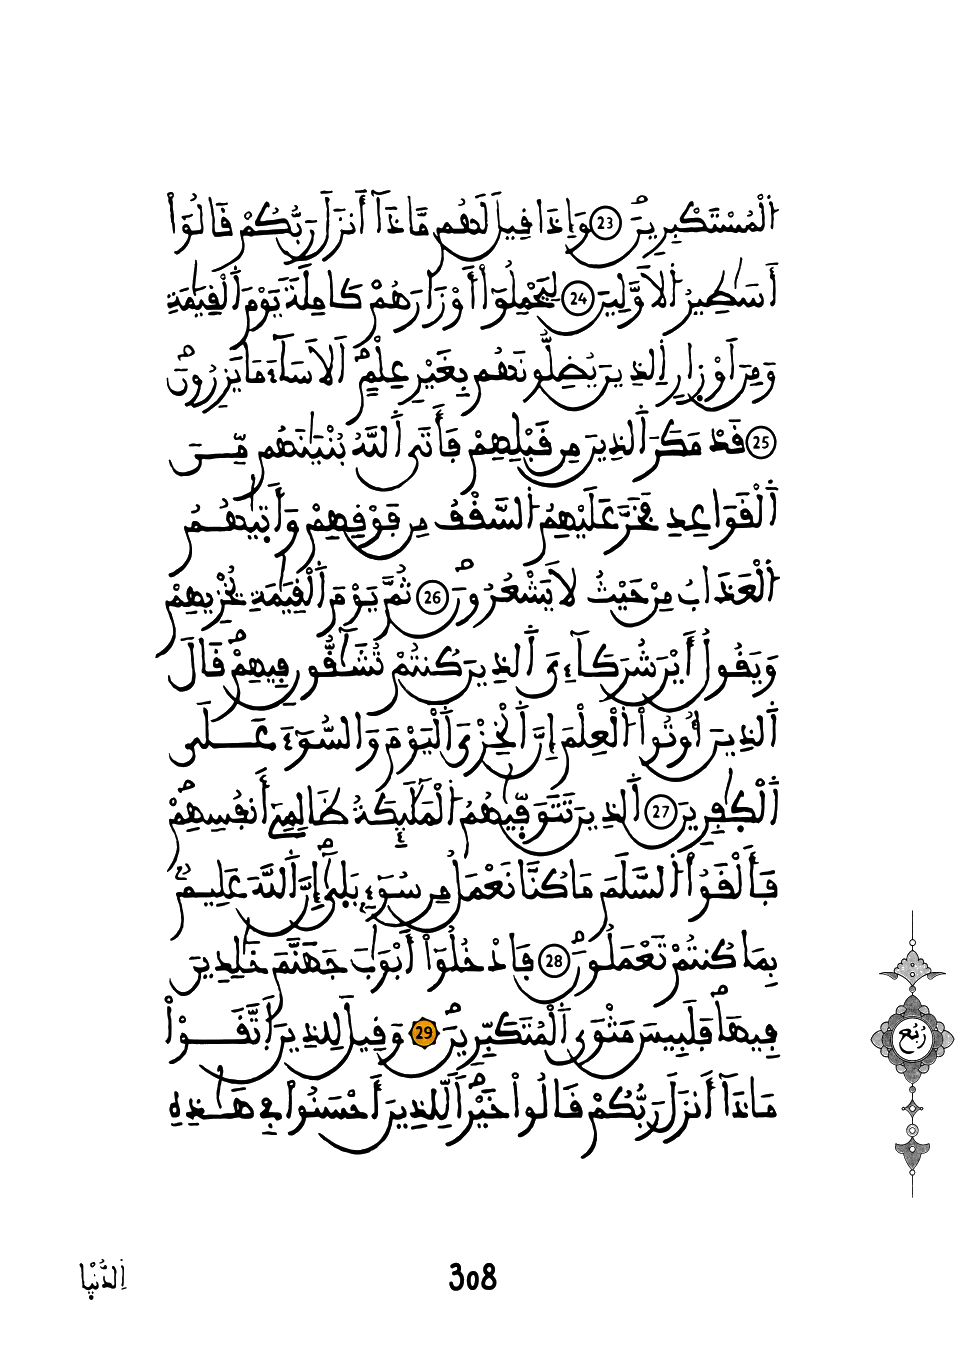 اَ۬لْمُسْتَكْبِرِينَۖ 23 وَإِذَا قِيلَ لَهُم مَّاذَآ أَنزَلَ رَبُّكُمْ قَالُوٓاْ
أَسَٰطِيرُ اُ۬لَاوَّلِينَ 24 لِيَحْمِلُوٓاْ أَوْزَارَهُمْ كَامِلَةٗ يَوْمَ اَ۬لْقِيَٰمَةِ
وَمِنَ اَوْزِارِ اِ۬لذِينَ يُضِلُّونَهُم بِغَيْرِ عِلْمٍۖ اَلَا سَآءَ مَا يَزِرُونَۖ
25 قَدْ مَكَرَ اَ۬لذِينَ مِن قَبْلِهِمْ فَأَتَى اَ۬للَّهُ بُنْيَٰنَهُم مِّنَ
اَ۬لْقَوَاعِدِ فَخَرَّ عَلَيْهِمُ اُ۬لسَّقْفُ مِن فَوْقِهِمْ وَأَت۪يٰهُمُ
اُ۬لْعَذَابُ مِنْ حَيْثُ لَا يَشْعُرُونَۖ 26 ثُمَّ يَوْمَ اَ۬لْقِيَٰمَةِ يُخْزِيهِمْ
وَيَقُولُ أَيْنَ شُرَكَآءِيَ اَ۬لذِينَ كُنتُمْ تُشَٰٓقُّونِ فِيهِمْۖ قَالَ
اَ۬لذِينَ أُوتُواْ اُ۬لْعِلْمَ إِنَّ اَ۬لْخِزْيَ اَ۬لْيَوْمَ وَالسُّوٓءَ عَلَى
اَ۬لْكٰ۪فِرِينَ 27 اَ۬لذِينَ تَتَوَفّ۪يٰهُمُ اُ۬لْمَلَٰٓئِكَةُ ظَالِمِےٓ أَنفُسِهِمْۖ
فَأَلْقَوُاْ اُ۬لسَّلَمَ مَا كُنَّا نَعْمَلُ مِن سُوٓءِۢۖ بَل۪ىٰٓۖ إِنَّ اَ۬للَّهَ عَلِيمُۢ
بِمَا كُنتُمْ تَعْمَلُونَۖ 28 فَادْخُلُوٓاْ أَبْوَٰبَ جَهَنَّمَ خَٰلِدِينَ
فِيهَاۖ فَلَبِيسَ مَثْوَى اَ۬لْمُتَكَبِّرِينَۖ 29 وَقِيلَ لِلذِينَ اَ۪تَّقَوْاْ
مَاذَآ أَنزَلَ رَبُّكُمْ قَالُواْ خَيْراٗۖ لِّلذِينَ أَحْسَنُواْ فِے هَٰذِهِ
رُبُع
308
اِ۬لدُّنْي۪ا